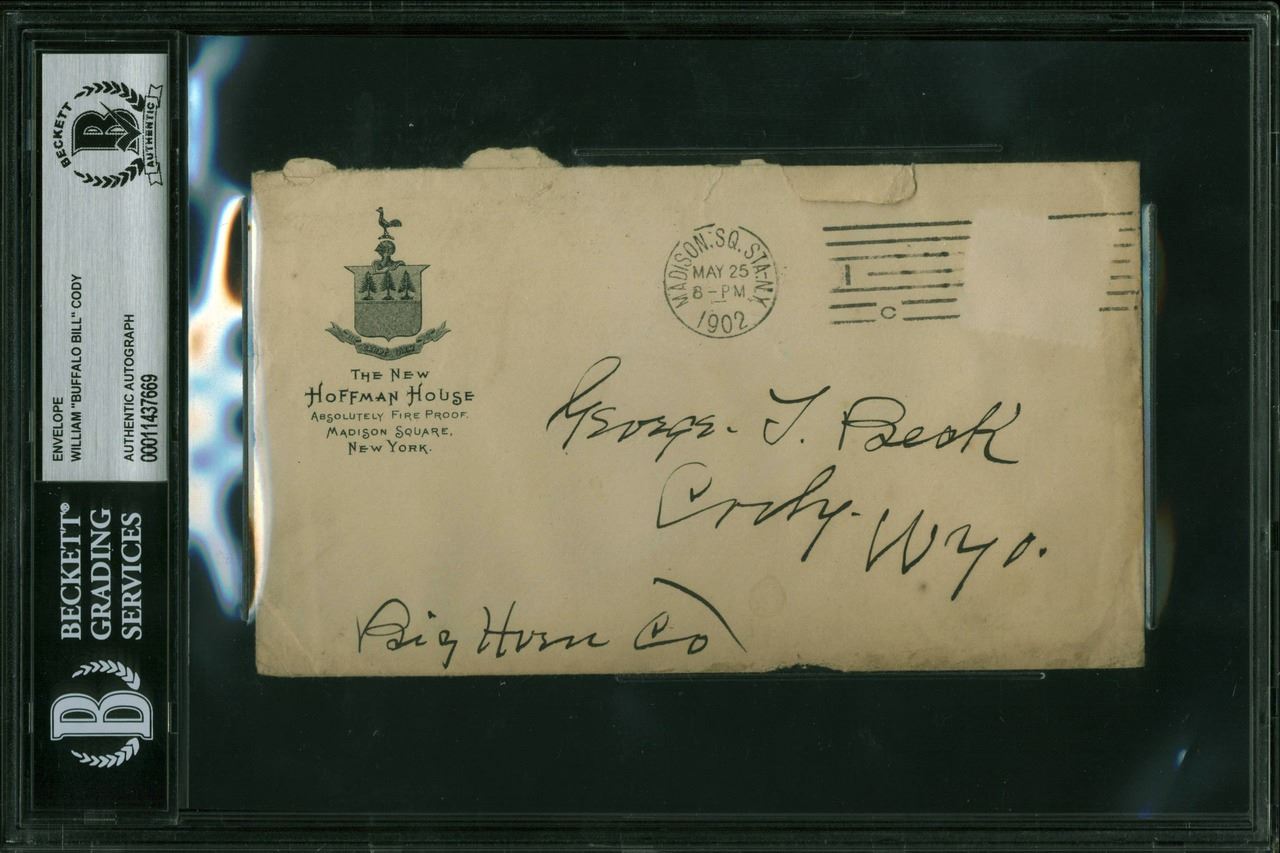 BECKETT
AUTHENTIC
ENVELOPE
WILLIAM "BUFFALO BILL" CODY
AUTHENTIC AUTOGRAPH
00011437669
BECKETT®
GRADING
SERVICES
B
THE NEW
HOFFMAN HOUSE
ABSOLUTELY FIRE PROOF.
MADISON SQUARE,
NEW YORK.
MADISON SQ. STA. N.Y.
MAY 25
8-PM
1902
1
C
George. T. Beck
Cody. Wyo.
Big Horn Co